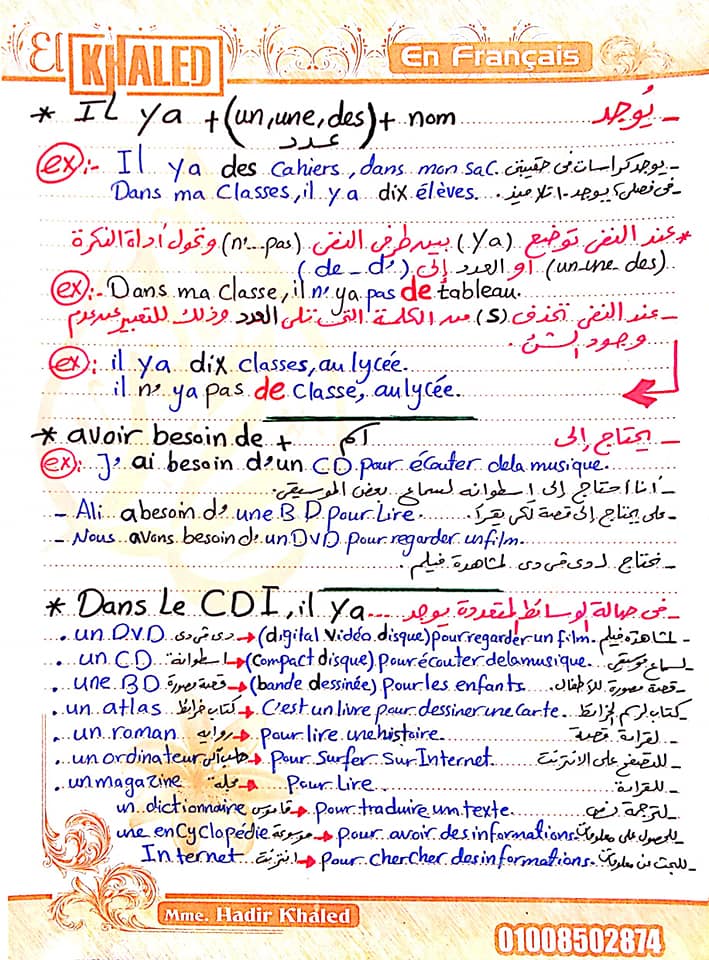 El KHALED
En Français
* Il ya + (un, une, des) + nom - يُوجد
عدد
ex:- Il ya des cahiers, dans mon sac. - يوجد كراسات فى حقيبتى
Dans ma Classes, il ya dix élèves. - فى فصلى، يوجد ١٠ تلاميذ.
* عند النفى توضع (ya) بين طرفى النفى (n'...pas) وتحول أداة النكرة
(un-une-des) أو العدد إلى (de - d')
ex:- Dans ma classe, il n'ya pas de tableau.
- عند النفى تحذف (s) من الكلمة التى تلى العدد وذلك للتعبير عن عدم
وجود الشئ.
ex: il ya dix classes, au lycée.
il n'ya pas de classe, au lycée.
* avoir besoin de + اسم - يحتاج إلى
ex: J'ai besoin d'un CD pour écouter de la musique.
- أنا أحتاج إلى إسطوانه لسماع بعض الموسيقى.
- Ali a besoin d'une BD pour Lire. - على يحتاج إلى قصة لكى يقرأ.
- Nous avons besoin d'un DVD pour regarder un film.
- نحتاج لـ دى فى دى لمشاهدة فيلم.
* Dans Le CDI, il ya ... - فى صالة الوسائط المتعددة يوجد
. un DVD دى فى دى → (digital vidéo disque) pour regarder un film. لمشاهدة فيلم
. un CD اسطوانة → (compact disque) pour écouter de la musique. لسماع موسيقى
. une BD قصة مصورة → (bande dessinée) pour les enfants. - قصة مصورة للأطفال.
. un atlas كتاب خرائط → C'est un livre pour dessiner une carte. - كتاب لرسم الخرائط
. un roman رواية → pour lire une histoire. - لقراءة قصة
. un ordinateur حاسب آلى → pour surfer sur Internet. - للتصفح على الانترنت
. un magazine مجلة → pour Lire. - للقراءة
un dictionnaire قاموس → pour traduire un texte. - لترجمة نص
une encyclopédie موسوعة → pour avoir des informations. - للحصول على معلومات
Internet انترنت → pour chercher des informations. - للبحث عن معلومات
Mme. Hadir Khaled
01008502874